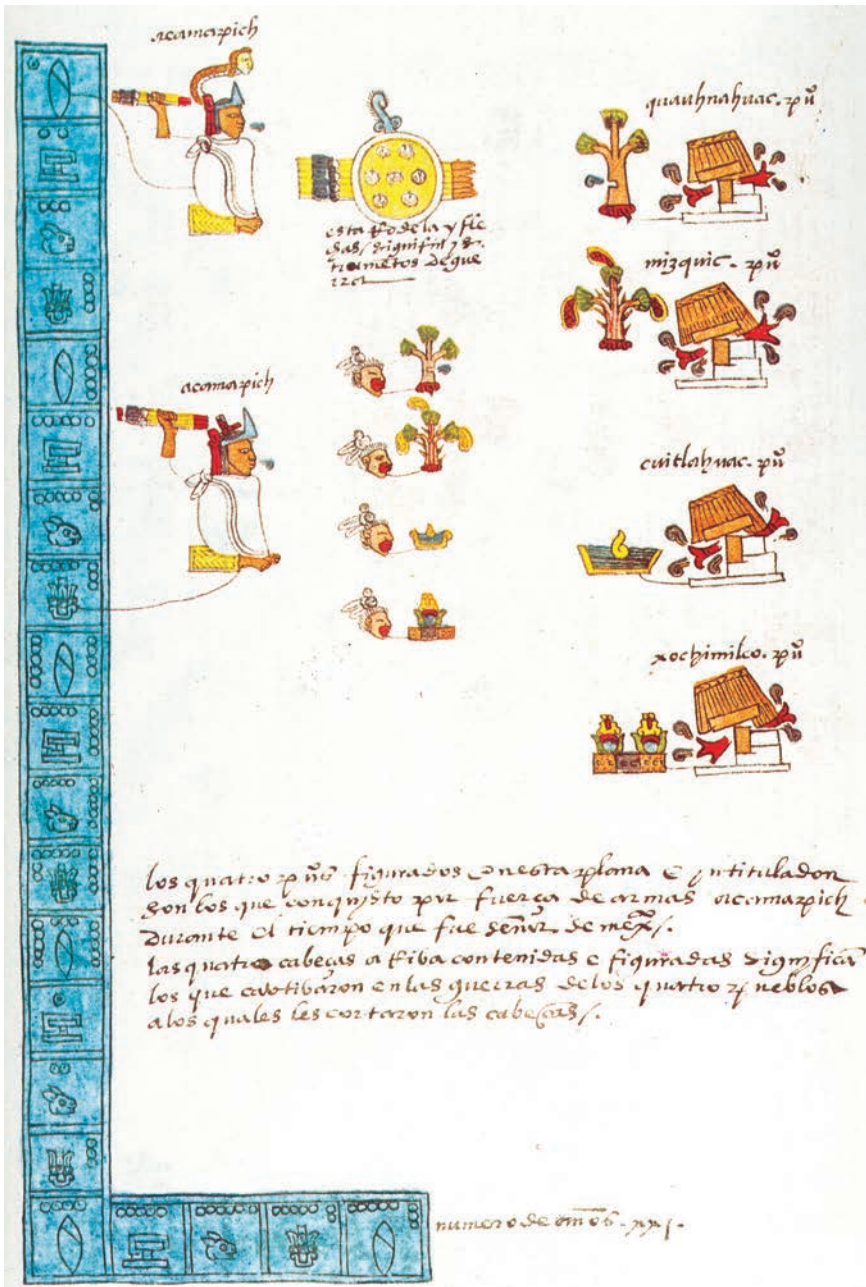 acamapich
quauhnahuac. pũ
esta Rodela y fle
chas / significã yns
trumẽtos de gue
rra
mizquic. pũ
acamapich
cuitlahuac. pũ
xochimilco. pũ
los quatro pũs figurados en esta plana e yntitulados
son los que conquisto por fuerça de armas acamapich
Durante el tiempo que fue señor de mexº/.
las quatro cabeças a Riba contenidas e figuradas significã
los que cabtibaron en las guerras de los quatro pueblos
a los quales les cortaron las cabeças/.
numero de años. xxj.